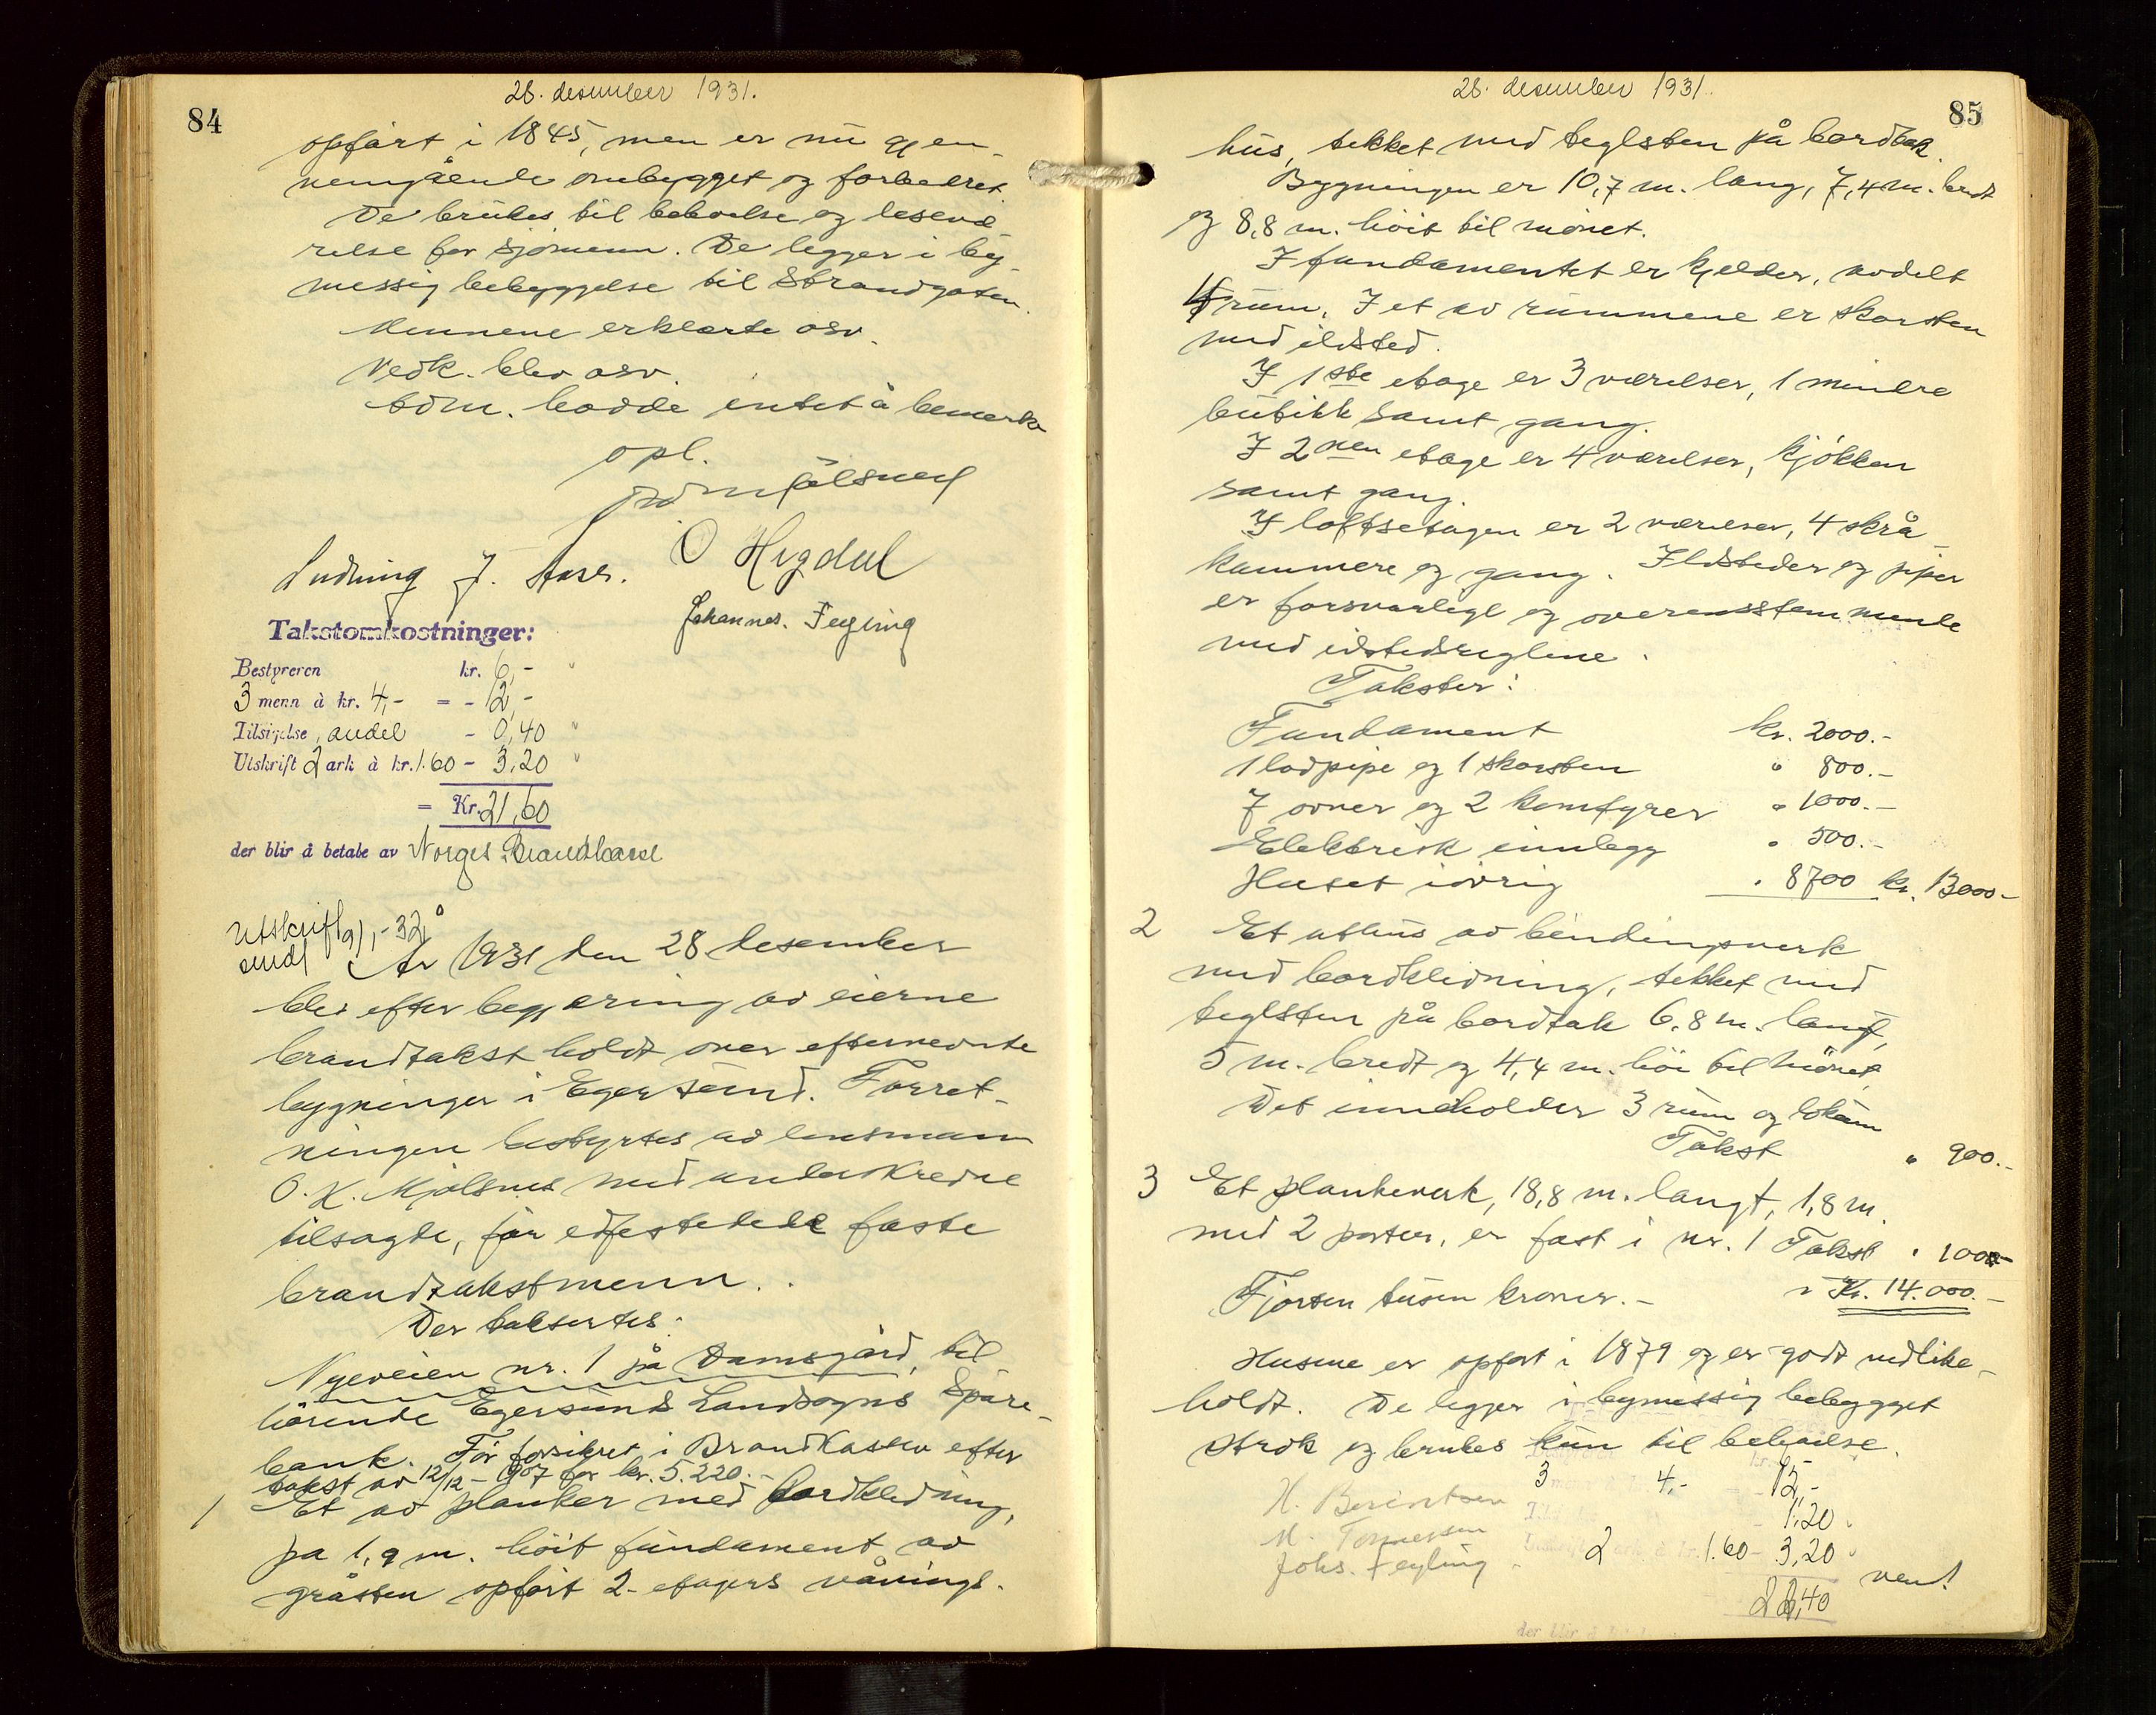 28. desember 1931.
84
opført i 1845, men er nu gjen-
nemgående ombygget og forbedret.
De brukes til beboelse og leseve-
relse for sjømenn. De legger i by-
messig bebyggelse til Strandgaten.
Mennene erklærte osv.
Vedk. blev osv.
hadde intet å bemerke
opl.
O Hegdal
Ludvig J. Aase.
Johannes. Feyling
Takstomkostninger:
Bestyreren kr. 6,-
3 menn à kr. 4,- = - 12,-
Tilsigelse, andel - 0,40 "
Utskrift 2 ark à kr. 1.60 - 3,20 "
= Kr. 21,60
der blir å betale av Norges Brandkasse
Utskrift 9/1-32
sendt
År 1931 den 28 desember
blev efter begjæring av eierne
brandtakst holdt over efternevnte
bygninger i Egersund. Forret-
ningen bestyrtes av lensmann
O. K. Mjølsnes med underskrevne
tilsagte, før edfestede faste
brandtakstmenn.
Der taksertes:
Nyeveien nr. 1 på Damsgård, til-
hørende Egersunds Landsogns Spare-
bank. Før forsikret i Brandkassen efter
takst av 12/12-1907 for kr. 5.220.-
1 Et av planker med bordkledning,
på 1,9 m. høit fundament av
gråsten opført 2-etagers vånings-
28. desember 1931.
85
hus, tekket med teglsten på bordtak.
Bygningen er 10,7 m. lang, 7,4 m. bredt
og 8,8 m. høit til mønet.
I fundamentet er kjelder, avdelt
4 rum. I et av rummene er skorsten
med ildsted.
I 1ste etage er 3 værelser, 1 mindre
butikk samt gang.
I 2nen etage er 4 værelser, kjøkken
samt gang.
I loftsetagen er 2 værelser, 4 skrå-
kammere og gang. Ildsteder og piper
er forsvarlige og overensstemmende
med ildstedsreglene.
Takster:
Fundament kr. 2000.-
1 lodpipe og 1 skorsten " 800.-
7 ovner og 2 komfyrer " 1000.-
Elektrisk innlegg " 500.-
Huset iøvrig " 8700 kr. 13000-
2 Et uthus av bindingsverk
med bordkledning, tekket med
teglsten på bordtak 6,8 m. langt,
5 m. bredt og 4,4 m. høi til mønet.
Det inneholder 3 rum og lokum
Takst " 900.-
3 Et plankeverk, 18,8 m. langt, 1,8 m.
med 2 porter, er fast i nr. 1 Takst " 100-
Fjorten tusen kroner.- Kr. 14.000.-
Husene er opført i 1879 og er godt vedlike-
holdt. De legger i bymessig bebygget
strøk og brukes kun til beboelse.
3 4,- 12,-
1,20 "
2 1.60 - 3,20 "
H. Berentsen
M. Tønnessen
Johs. Feyling
vend!